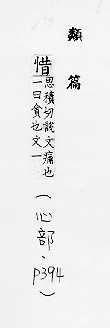 類篇
惜思積切說文痛也
一曰貪也文一
(心部、p394)